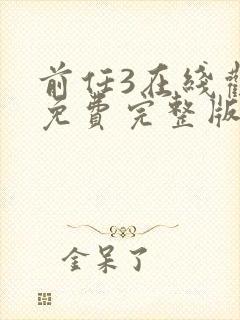 前任3在线観
免费完整版
金呆了